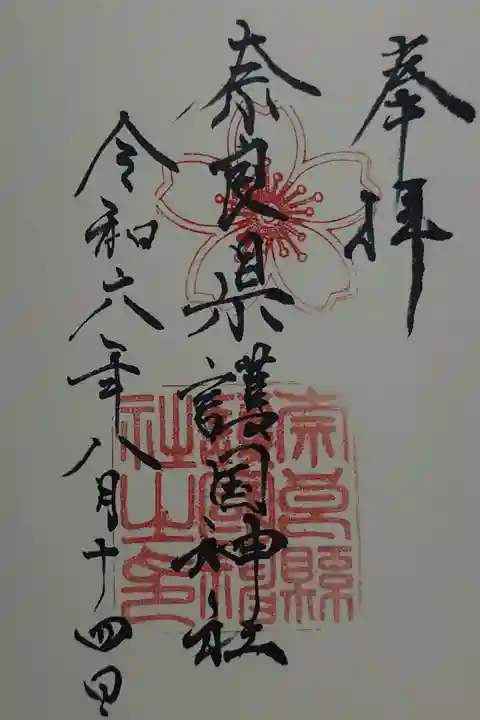 奉拝
奈良県護国神社
奈良縣護國神社之印
令和六年八月十四日